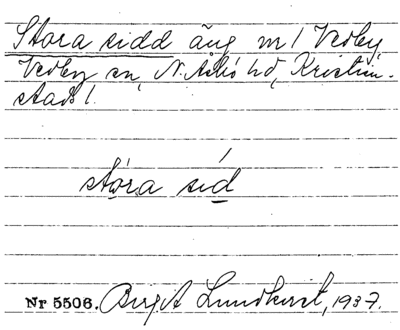 Stora sidd äng nr 1 Vedby
Vedby sn, N. Åsbo hd, Kristian-
stads l.
stóra síd
Nr 5506. Birgit Lundkvist, 1937.